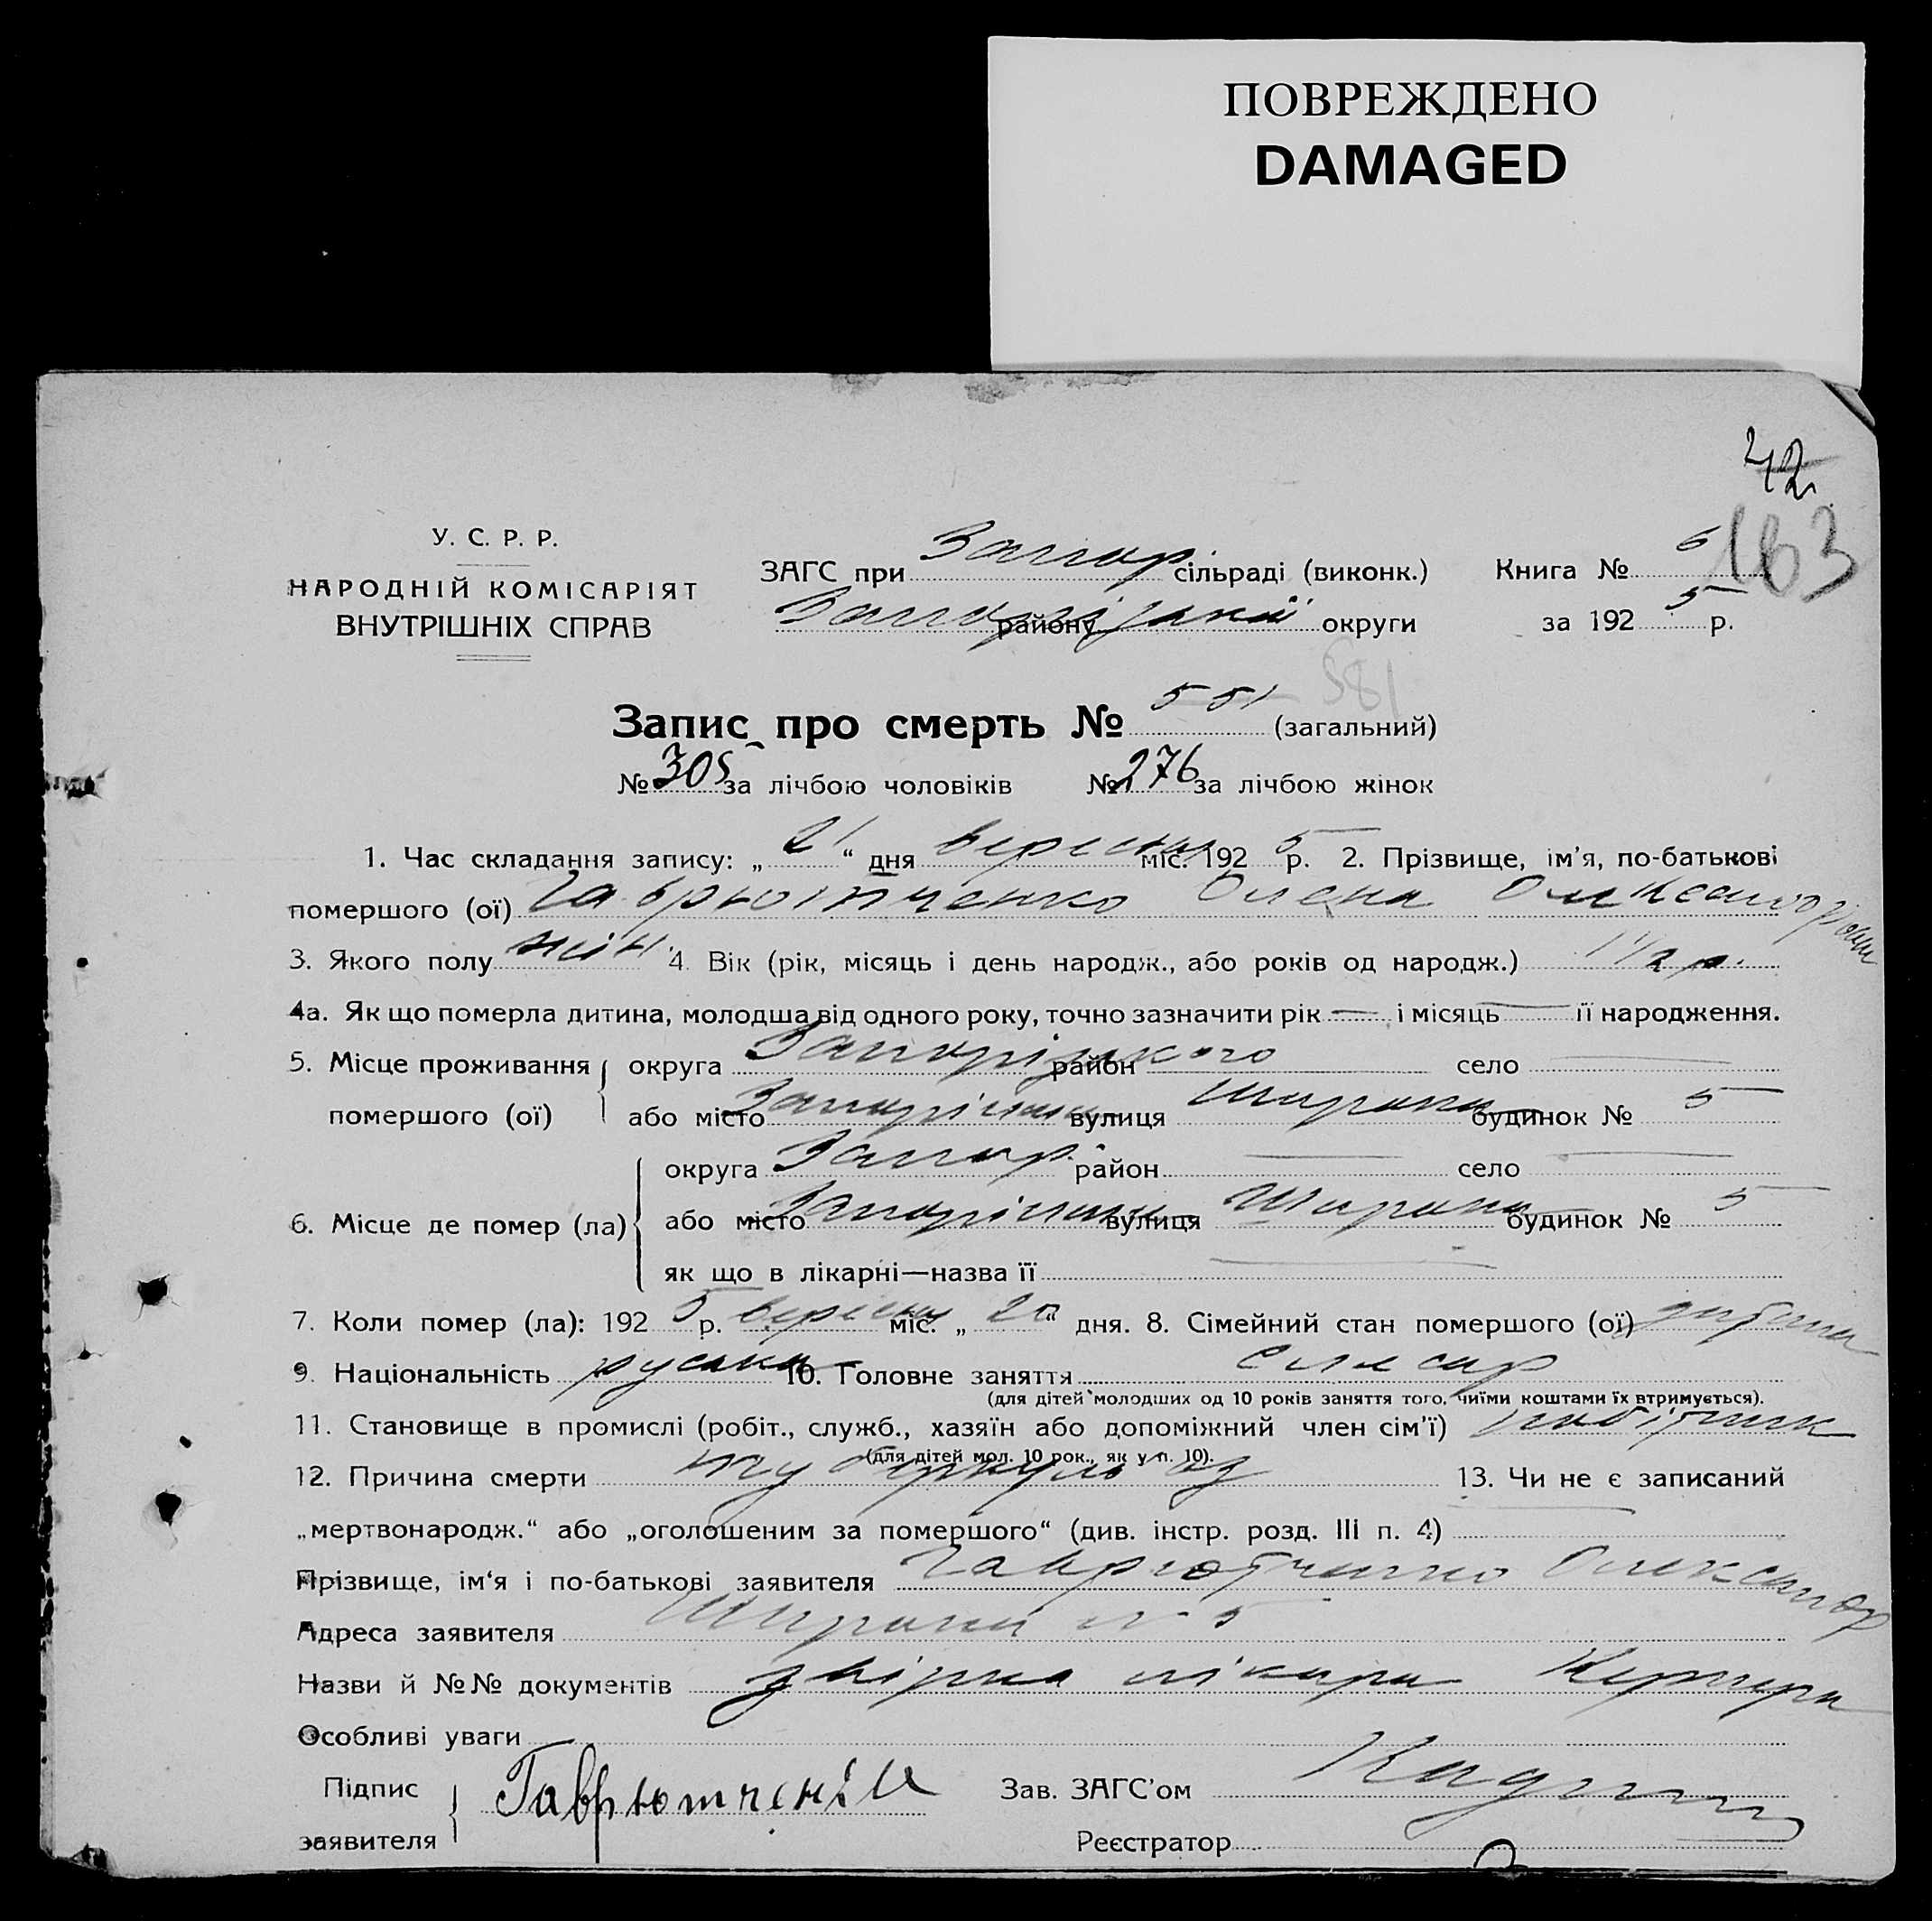 ПОВРЕЖДЕНО
DAMAGED
42
163
У. С. Р. Р.
НАРОДНІЙ КОМІСАРІЯТ
ВНУТРІШНІХ СПРАВ
ЗАГС при Запор сільраді (виконк.) Книга № 6
району Запорізької округи за 192 5 р.
581
Запис про смерть № 551 (загальний)
№ 305 за лічбою чоловіків № 276 за лічбою жінок
1. Час складання запису: „ 21 “ дня вересня міс. 192 5 р. 2. Прізвище, ім’я, по-батькові
помершого (ої) Гаврютченко Олена Олександровна
3. Якого полу жін. 4. Вік (рік, місяць і день народж., або років од народж.) 1 1/2 р.
4а. Як що померла дитина, молодша від одного року, точно зазначити рік — і місяць — її народження.
5. Місце проживання округа Запорізького район — село —
помершого (ої) або місто Запоріжжя вулиця Широка будинок № 5
округа Запор. район — село —
6. Місце де помер (ла) або місто Запоріжжя вулиця Широка будинок № 5
як що в лікарні—назва її —
7. Коли помер (ла): 192 5 р. вересня міс. „ 20 “ дня. 8. Сімейний стан помершого (ої) дитина
9. Національність руська 10. Головне заняття слюсар
(для дітей молодших од 10 років заняття того, чиїми коштами їх втримується).
11. Становище в промислі (робіт., служб., хазяїн або допоміжний член сім’ї) робітник
(для дітей мол. 10 рок., як у п. 10).
12. Причина смерти туберкульоз 13. Чи не є записаний
„мертвонародж.“ або „оголошеним за помершого“ (див. інстр. розд. III п. 4) —
Прізвище, ім‘я і по-батькові заявителя Гаврютченко Олександр
Адреса заявителя Широка № 5
Назви й №№ документів довірка лікаря
Особливі уваги
Підпис
заявителя Гаврютченко
Зав. ЗАГС’ом
Реєстратор